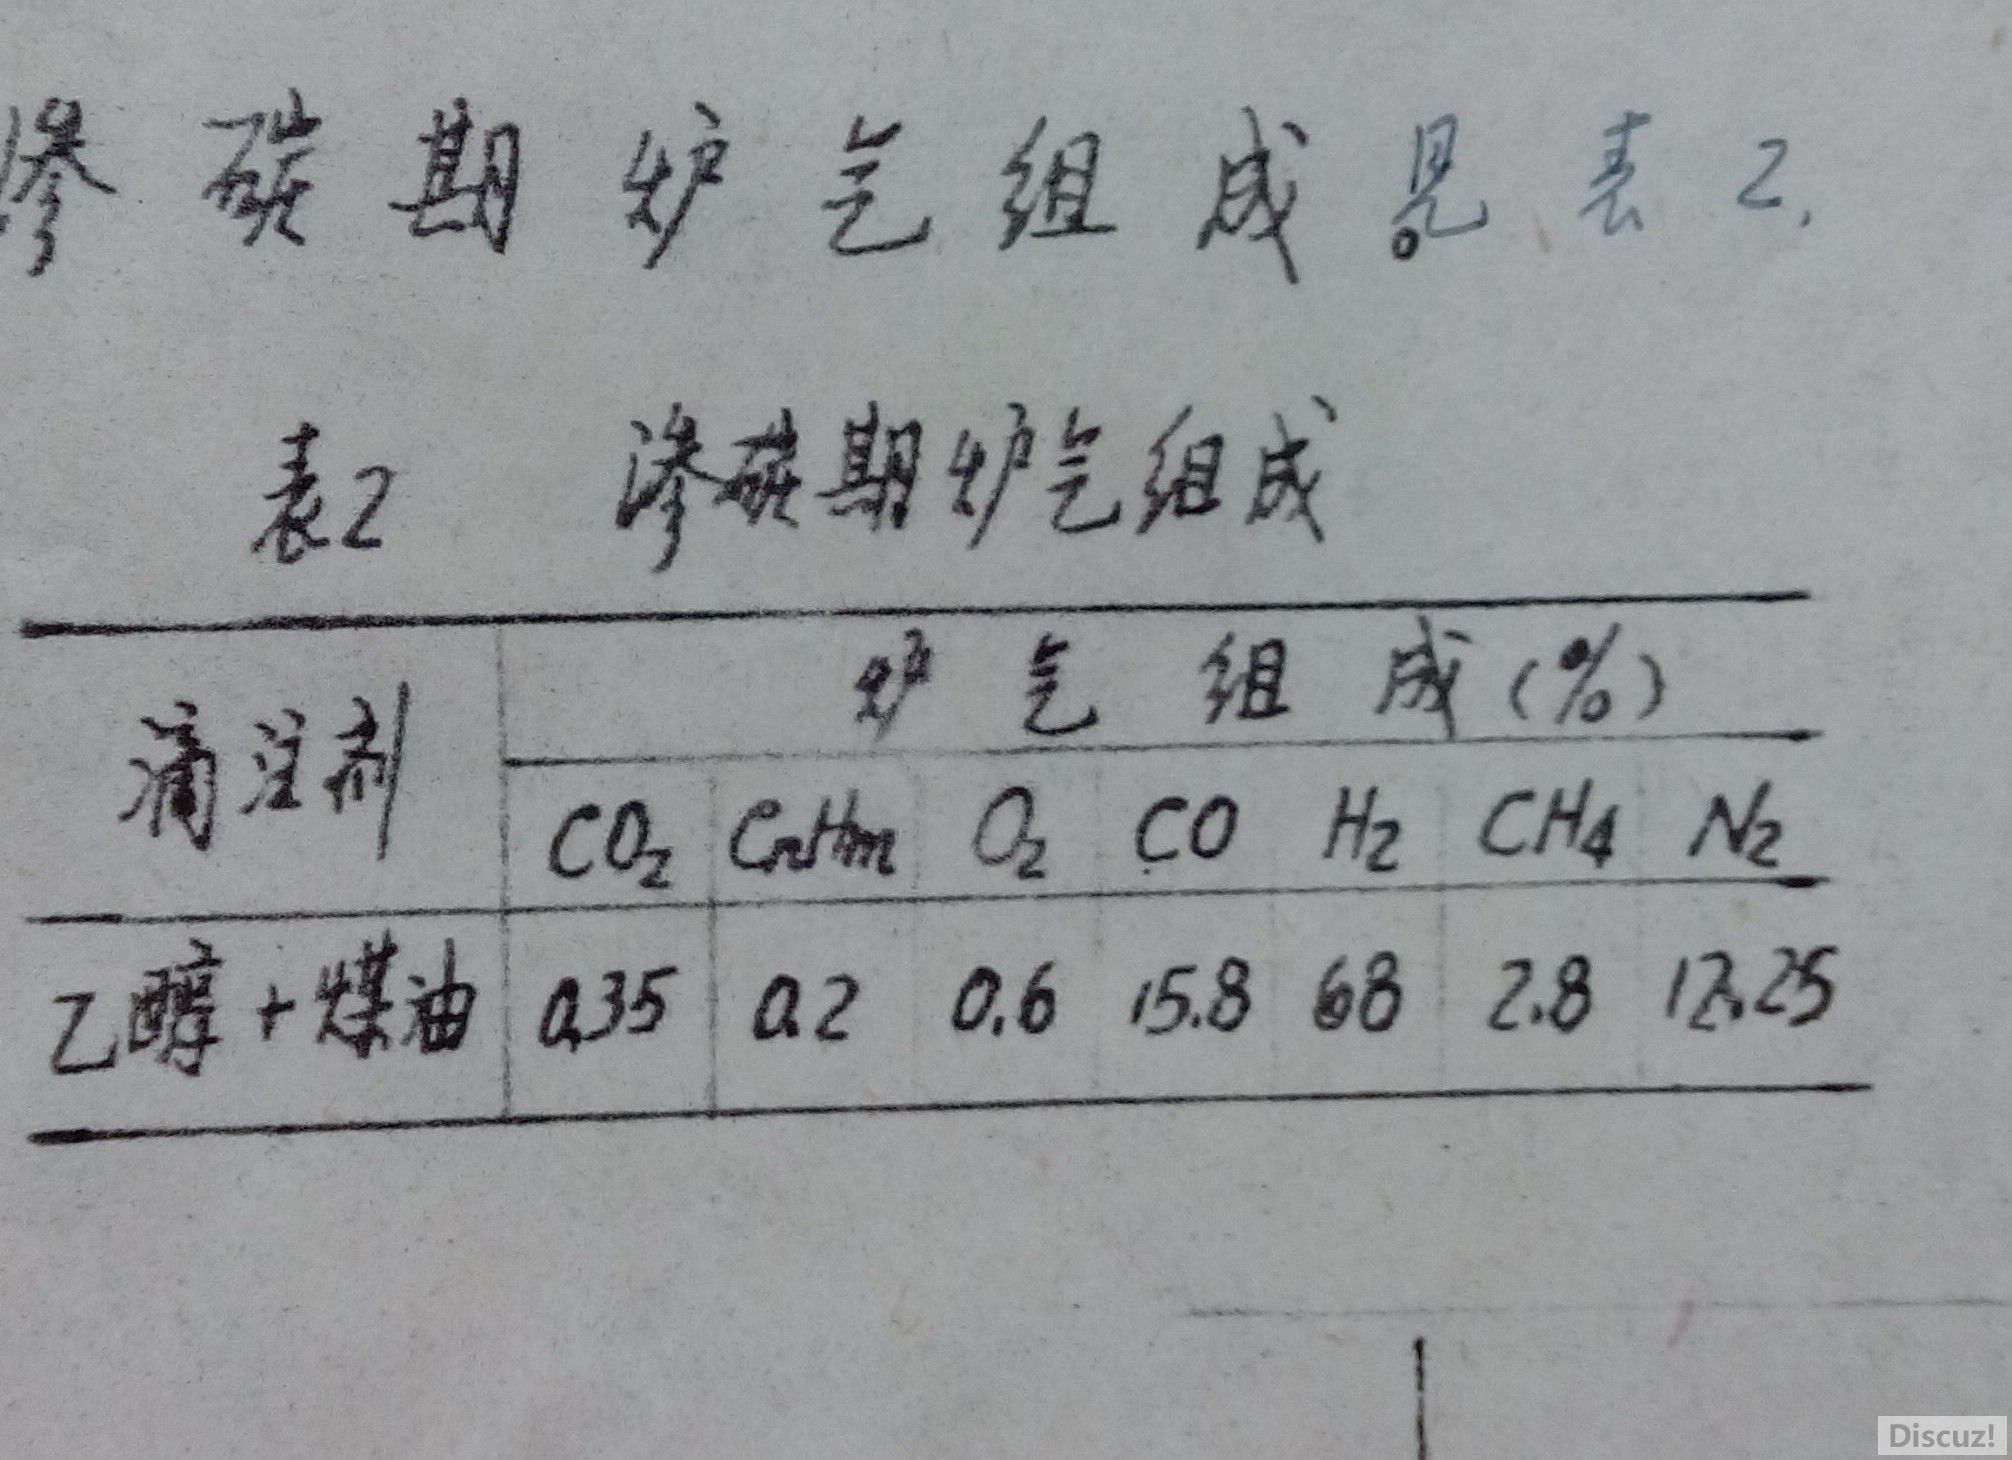 渗碳期炉气组成。见表2.
表2 渗碳期炉气组成
滴注剂 炉气组成(%)
CO₂ CnHm O₂ CO H₂ CH₄ N₂
乙醇+煤油 0.35 0.2 0.6 15.8 68 2.8 12.25
Discuz!